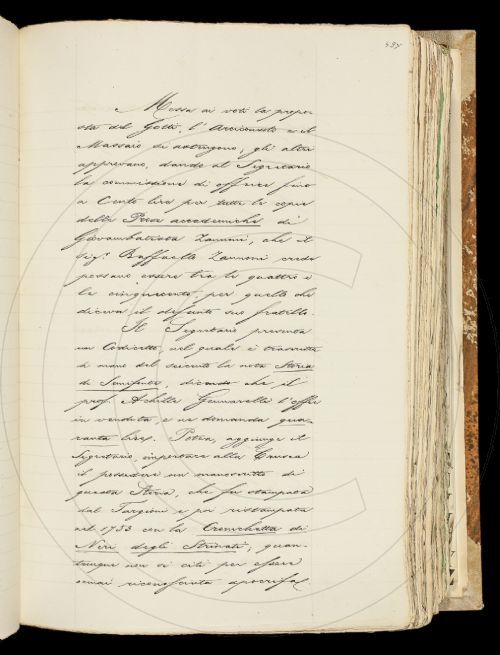 Messa ai voti la propo-
sta del Gotti, l'Arciconsolo e il
Massaio si astengono; gli altri
approvano, dando al Segretario
la commissione di offrire fino
a Cento lire per tutte le copie
delle Prose accademiche di
Giovambatista Zannoni, che il
Sig.r Raffaello Zannoni crede
possano essere tra le quattro e
le cinquecento, per quello che
diceva il defunto suo fratello.
Il Segretario presenta
un Codicetto, nel quale è trascritta
di mano del seicento la nota Storia
di Semifonte, dicendo che il
prof. Achille Gennarelli l'offre
in vendita, e ne domanda qua-
ranta lire. Potria, aggiunge il
Segretario, importare alla Crusca
il possedere un manoscritto di
questa Storia, che fu stampata
dal Targioni e poi ristampata
nel 1753 con la Cronichetta di
Neri degli Strinati; quan-
tunque non si citi per essere
omai riconosciuta apocrifa.